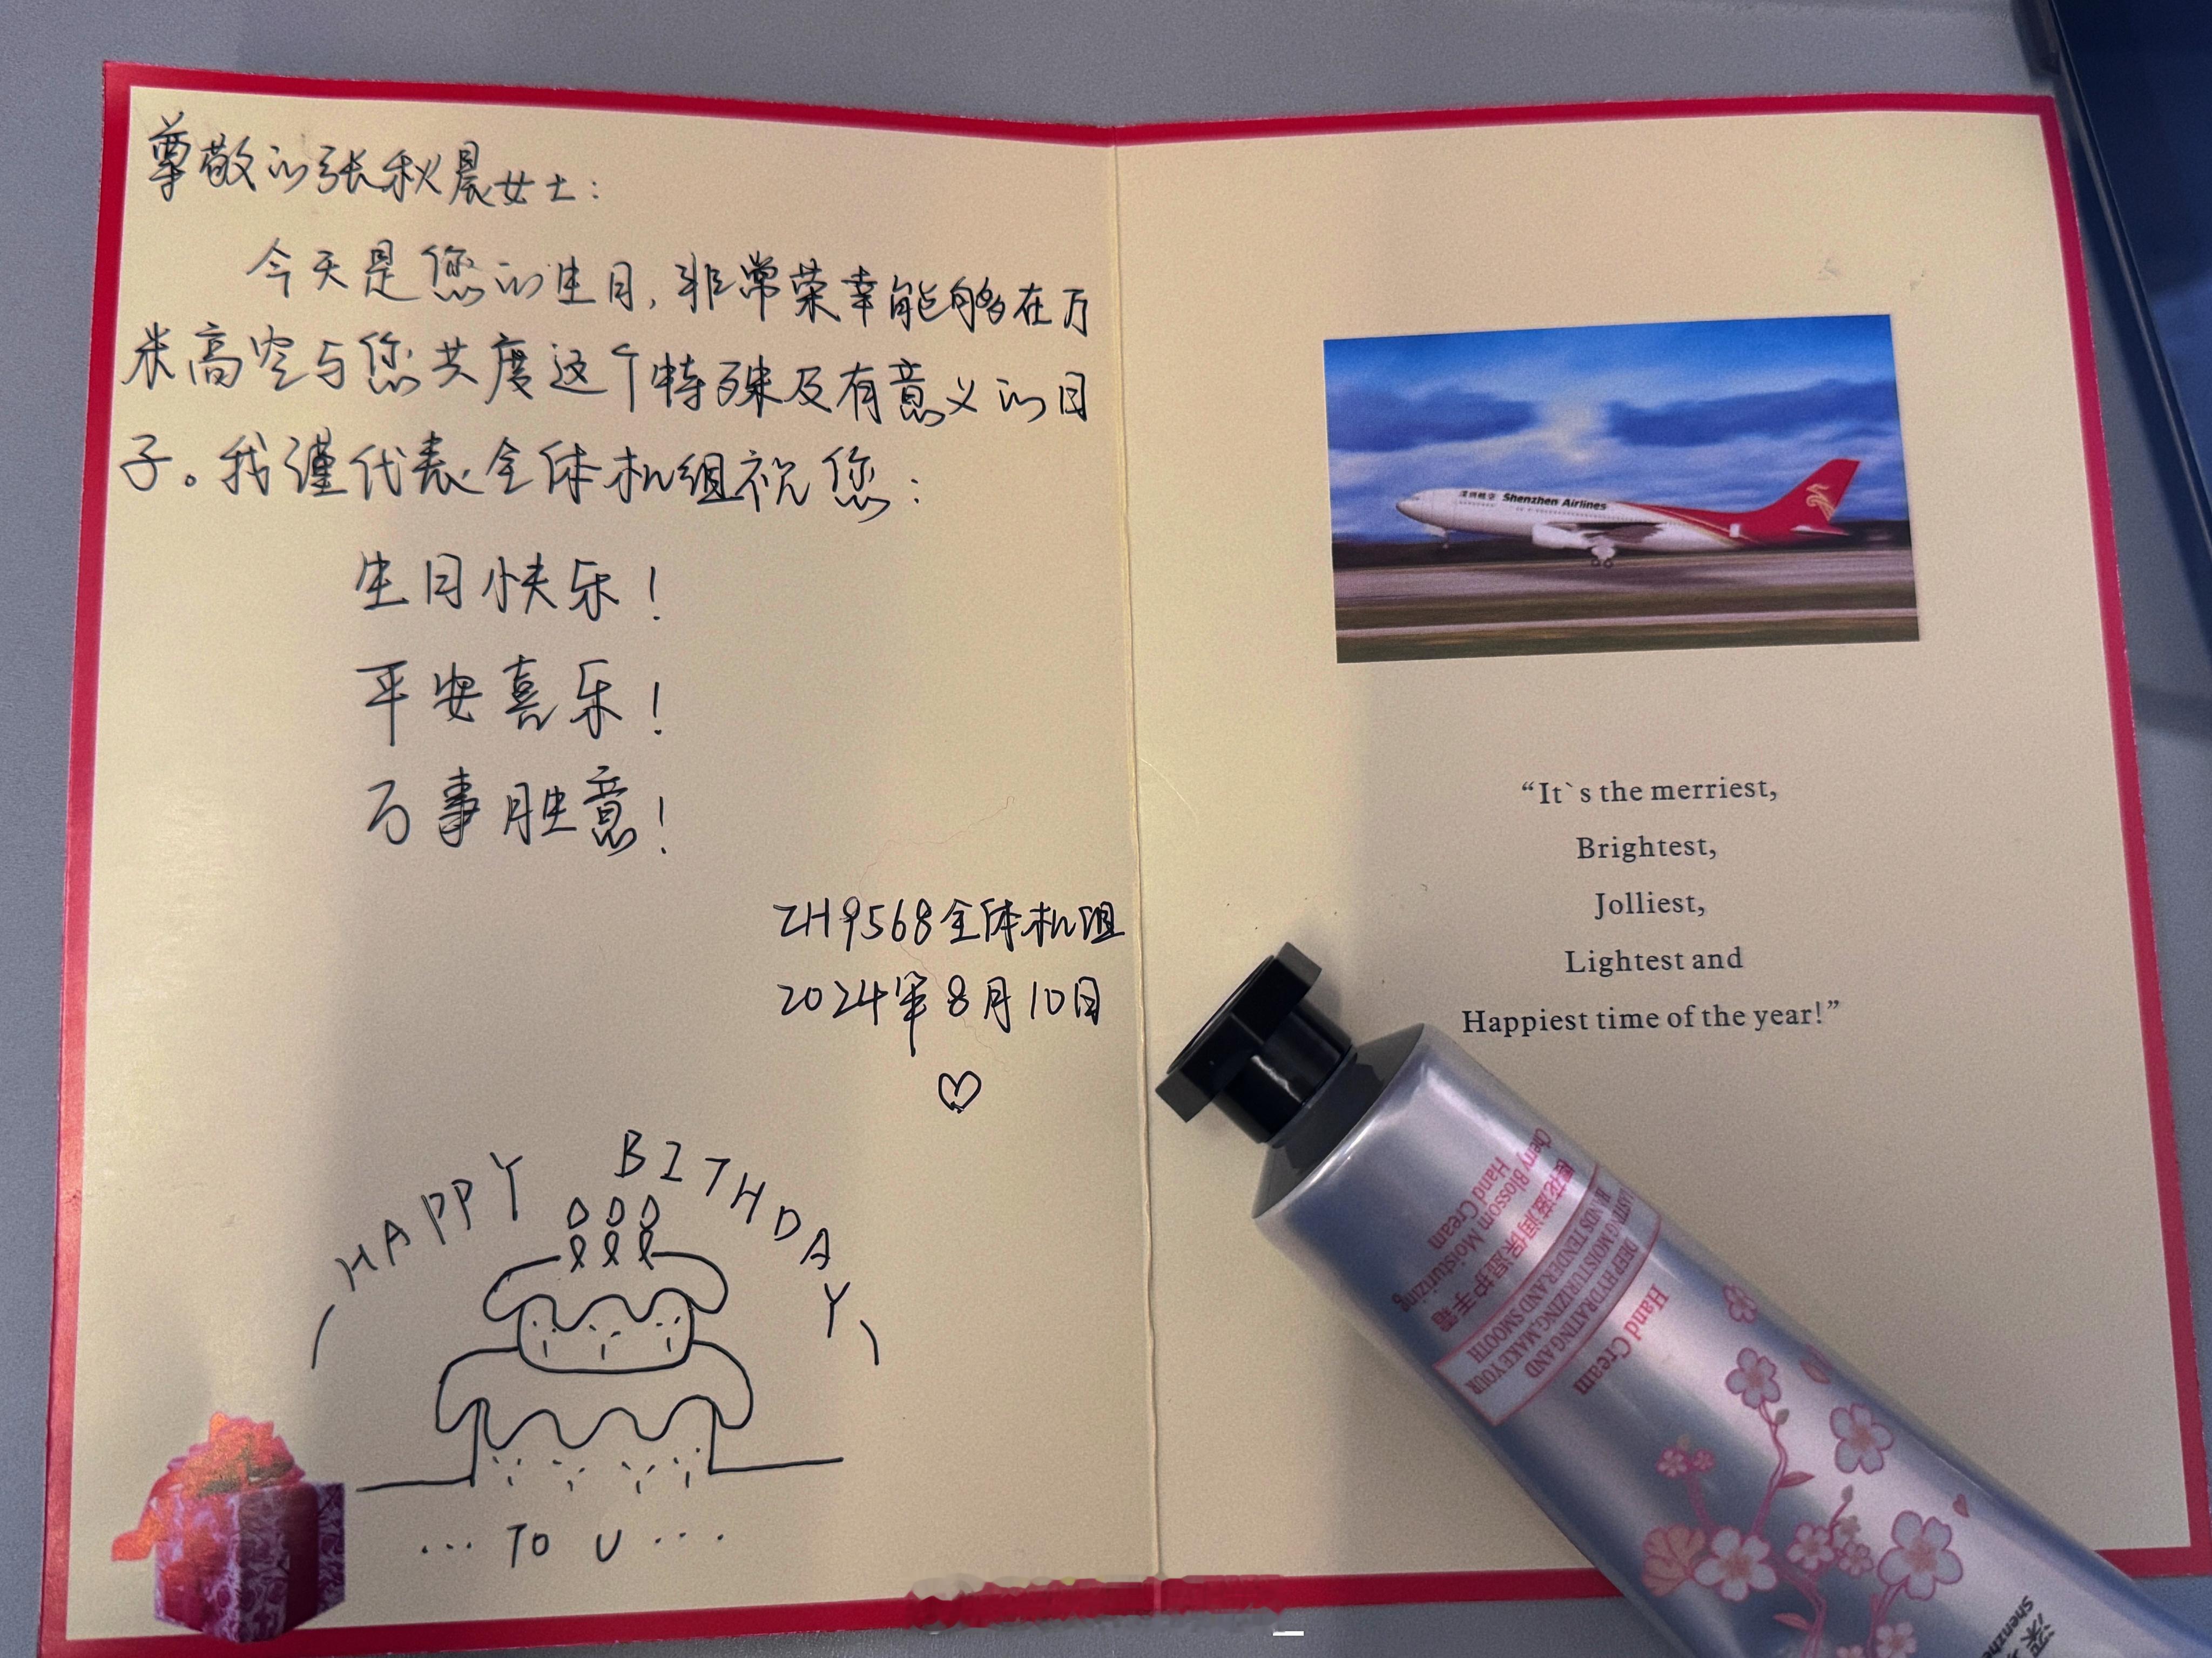 尊敬的张秋晨女士：
今天是您的生日，非常荣幸能够在万
米高空与您共度这个特殊及有意义的日
子。我谨代表全体机组祝您：
生日快乐！
平安喜乐！
万事胜意！
ZH9568全体机组
2024年8月10日
HAPPY BITHDAY
... TO U ...
深圳航空 Shenzhen Airlines
“It`s the merriest,
Brightest,
Jolliest,
Lightest and
Happiest time of the year!”
樱花滋润保湿护手霜
Cherry Blossom Moisturizing
Hand Cream
DEEP HYDRATING AND
LASTING MOISTURIZING,MAKE YOUR
HANDS TENDER AND SMOOTH
Hand Cream